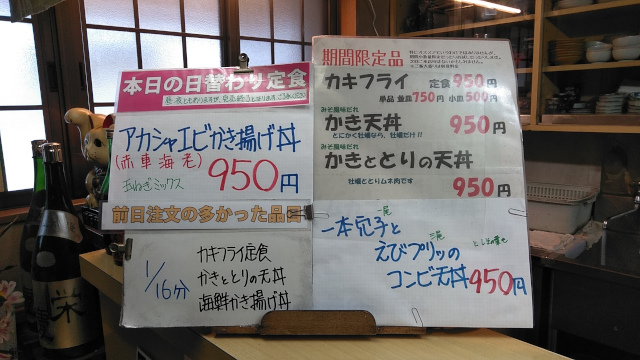 本日の日替わり定食
アカシャエビかき揚げ丼
(赤車海老)
玉ねぎミックス
950円
前日注文の多かった品
1/16分
カキフライ定食
かきととりの天丼
海鮮かき揚げ丼
期間限定品
カキフライ 定食950円
単品 並皿750円 小皿500円
みそ風味だれ
かき天丼 950円
とにかく牡蠣なら、牡蠣だけ!!
みそ風味だれ
かきととりの天丼
牡蠣ととりムネ肉です
950円
一本穴子と
えびプリッの
コンビ天丼950円